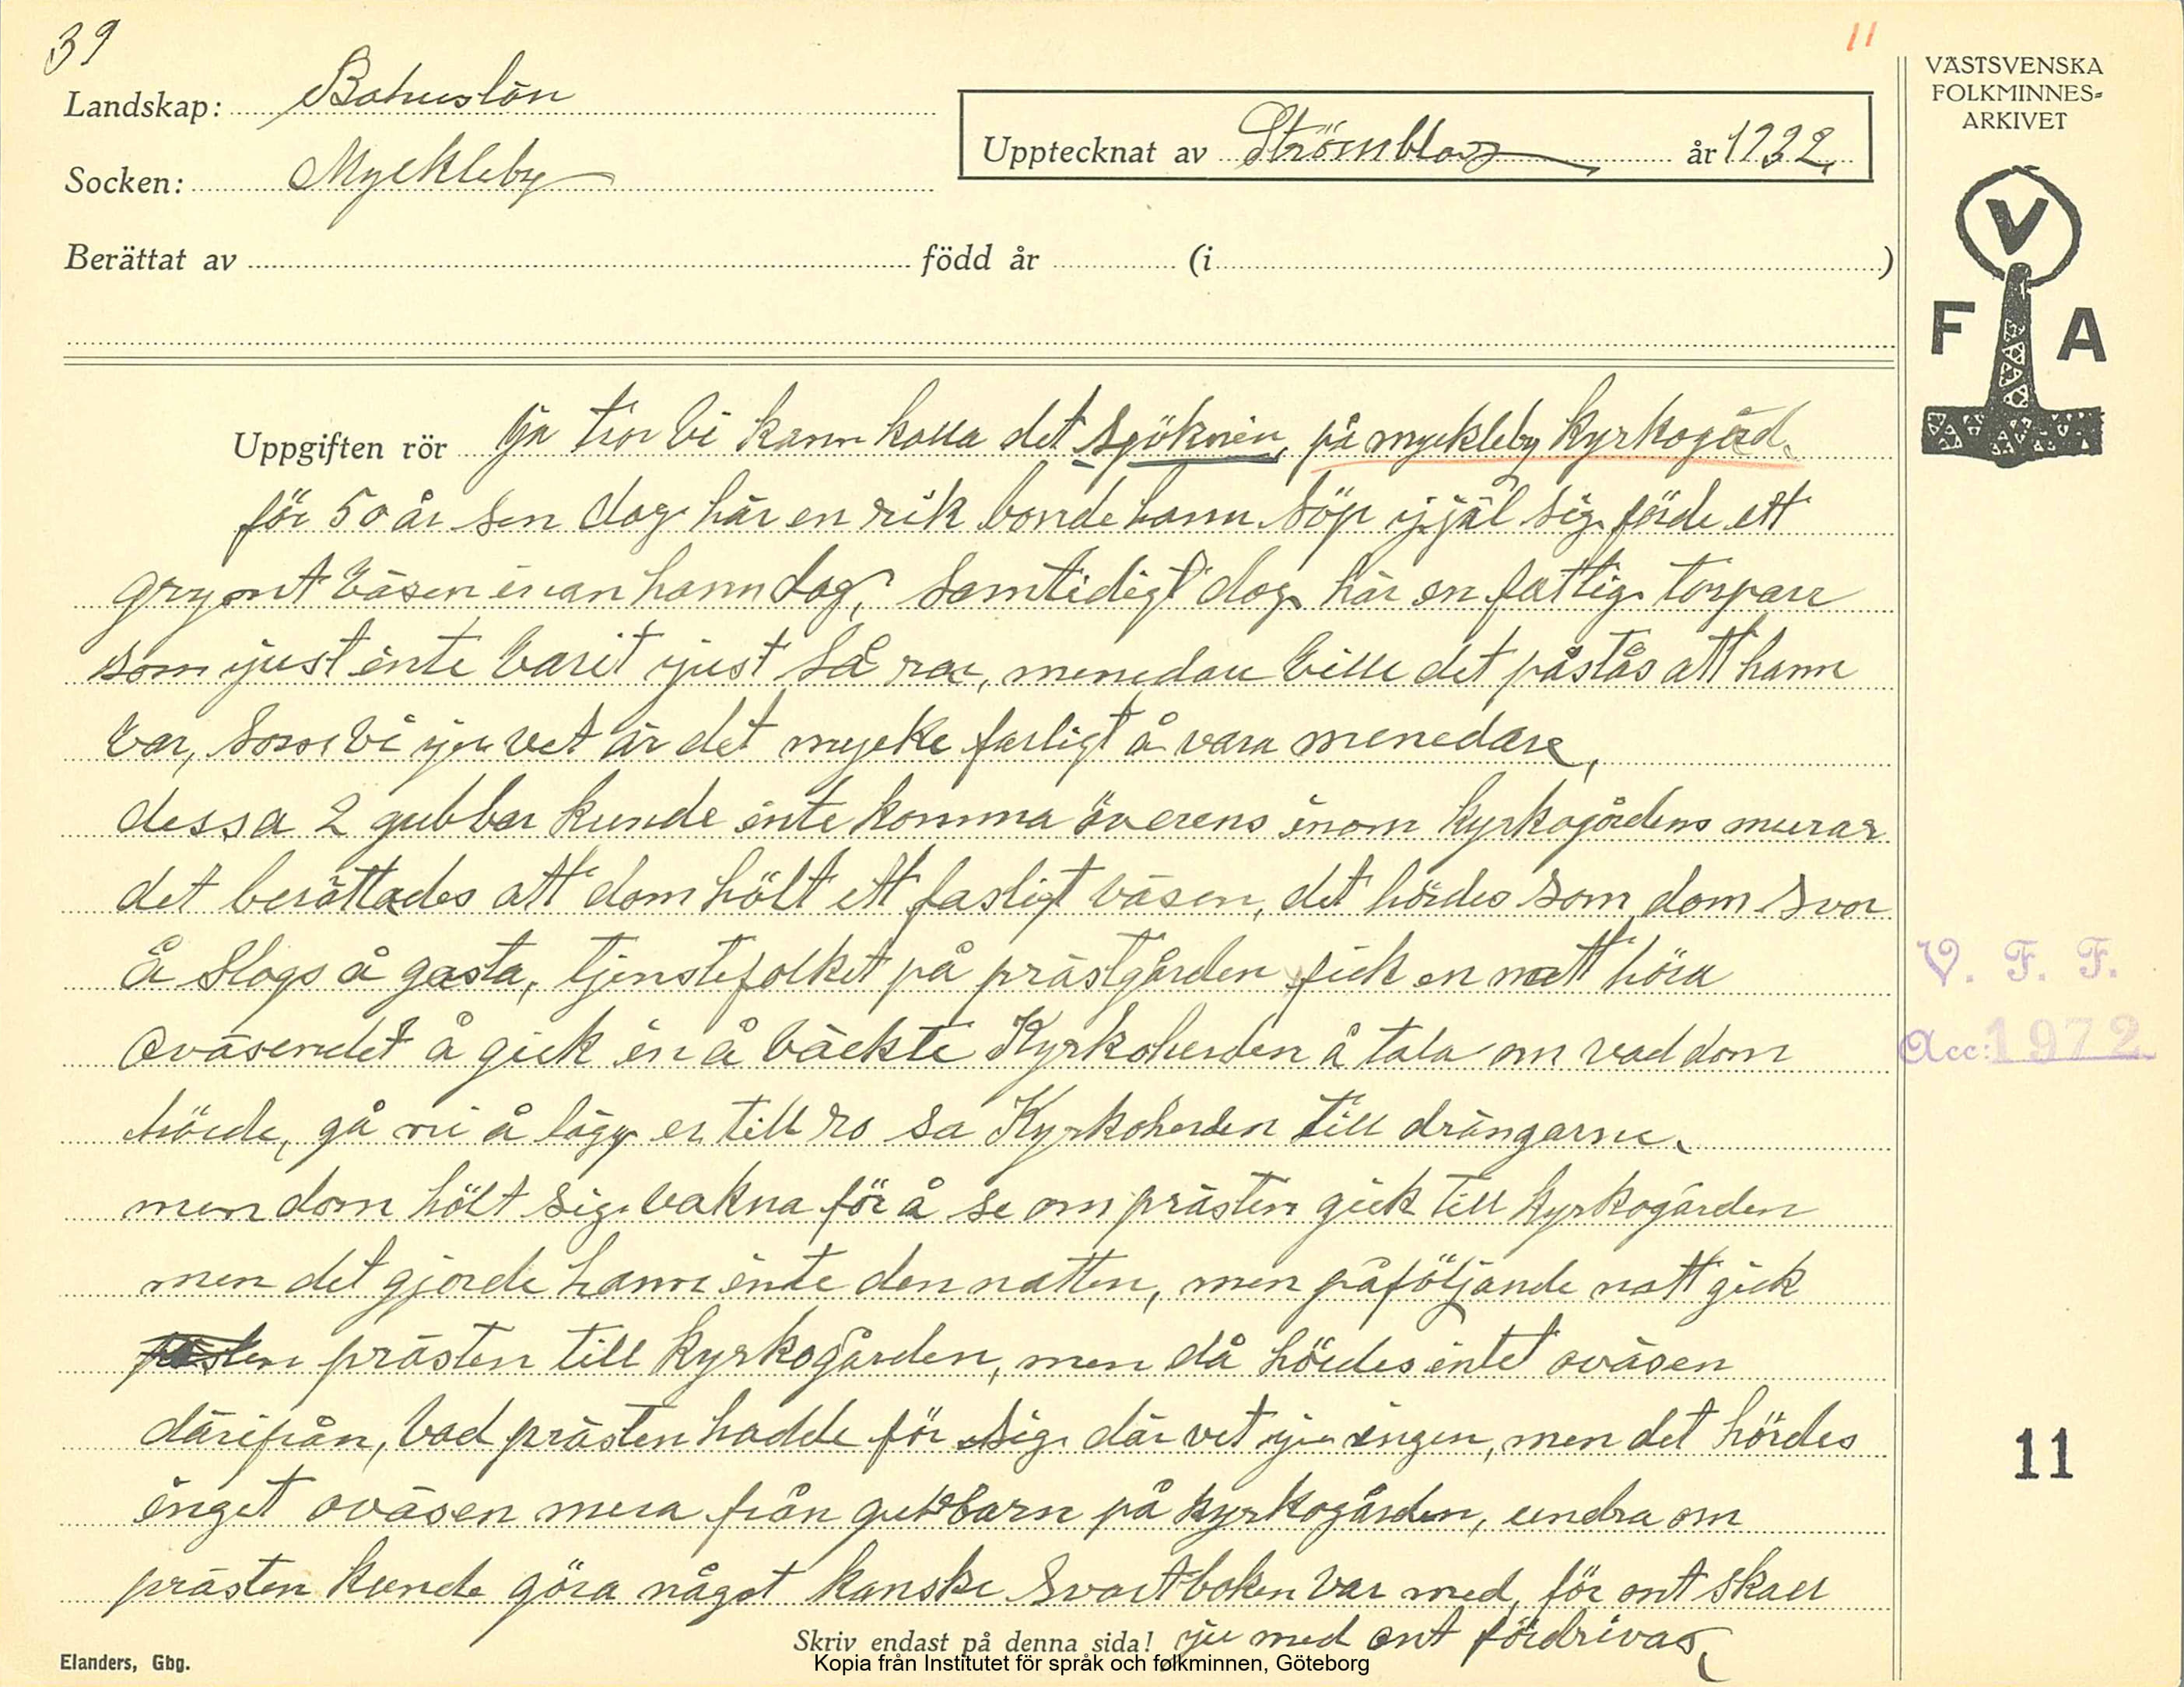 39
11
Landskap: Bohuslän
Socken: Myckleby
Upptecknat av Strömblad år 1932.
Berättat av född år (i )
VÄSTSVENSKA
FOLKMINNES-
ARKIVET
V
F A
Uppgiften rör Ja tror vi kann kalla det spökneri, på myckleby kyrkogård.
för 50 år sen dog här en rik bonde hann söp ijäl sig förde ett
grymt väsen inan hann dog, samtidigt dog här en fattig torparr
som just inte varit just så rar, menedare ville det påstås att hann
var, som vi ju vet är det mycke farligt å vara menedare,
dessa 2 gubbar kunde inte komma överens inom kyrkogårdens murar
det berättades att dom hölt ett fasligt väsen, det hördes som dom svor
å slogs å gasta, tjenstefolket på prästgården fick en natt höra
oväsendet å gick in å väckte Kyrkoherden å tala om vad dom
hörde, gå ni å lägg er till ro sa Kyrkoherden till drängarne.
men dom hölt sig vakna för å se om prästen gick till kyrkogården
men det gjorde hann inte den natten, men påföljande natt gick
prästen till kyrkogården, men då hördes intet oväsen
därifrån, vad prästen hadde för sig där vet ju ingen, men det hördes
inget oväsen mera från gubbarn på kyrkogården, undra om
prästen kunde göra något kanske svartboken var med, för ont skall
ju med ont fördrivas,
V. F. F.
Acc: 1972
11
Skriv endast på denna sida!
Elanders, Gbg.
Kopia från Institutet för språk och folkminnen, Göteborg